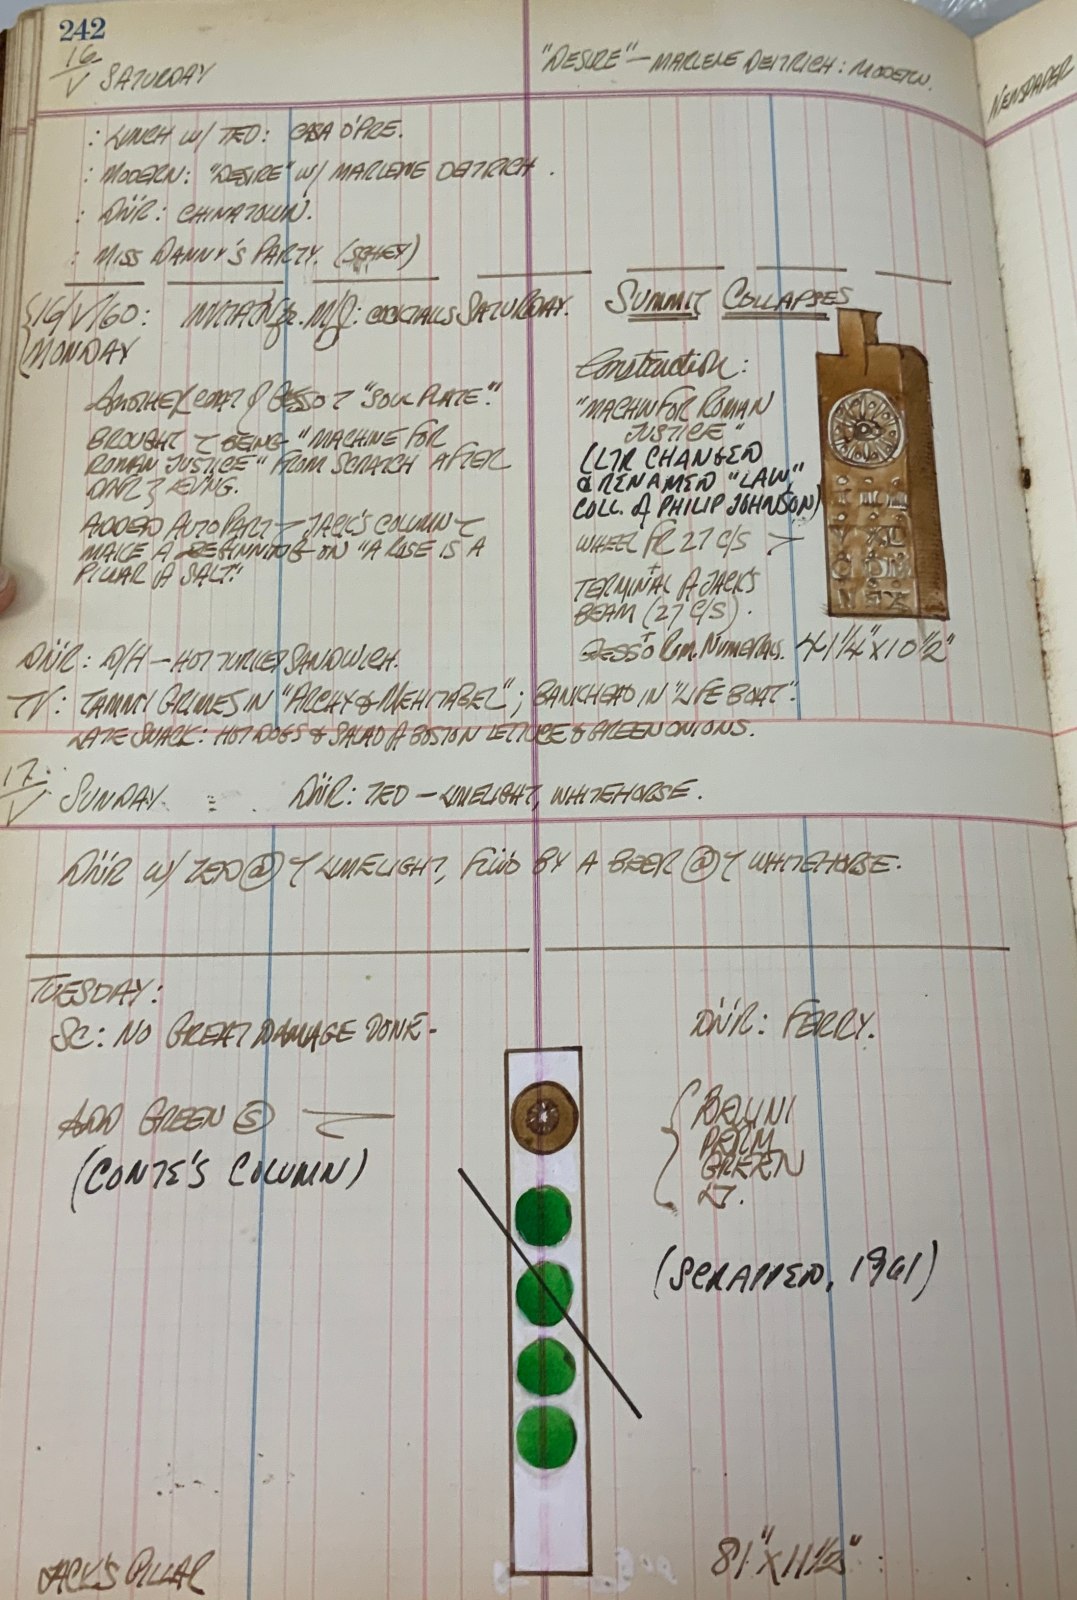 242
16/V SATURDAY
"DESIRE" — MARLENE DEITRICH: MODERN.
NEWSPAPER
: LUNCH W/ TED: CASA D'PRE.
: MODERN: "DESIRE" W/ MARLENE DEITRICH.
: DN̈R: CHINATOWN.
: MISS DANNY'S PARTY. (SOHEY)
16/V/60:
MONDAY
COCKTAILS SATURDAY.
ANOTHER COAT OF GESSO "SOUL PLATE".
BROUGHT BEING "MACHINE FOR
ROMAN JUSTICE" FROM SCRATCH AFTER
DN̈R
ADDED AUTO PART JACK'S COLUMN
MAKE A BEGINNING ON "A ROSE IS A
PILLAR OF SALT."
SUMMIT COLLAPSES
Construction:
"MACHIN FOR ROMAN
JUSTICE"
(LTR CHANGED
& RENAMED "LAW,"
COLL. OF PHILIP JOHNSON)
WHEEL FR 27 C/S
+
TERMINAL OF JACK'S
BEAM (27 C/S).
+
GESSO Rom. Numerals. 41 1/4" X 10 1/2"
DN̈R: D/H — HOT TURKEY SANDWICH.
TV: TAMMY GRIMES IN "ARCHY & MEHITABEL"; BANKHEAD IN "LIFE BOAT".
LATE SNACK: HOT DOGS & SALAD OF BOSTON LETTUCE & GREEN ONIONS.
17/V SUNDAY
DN̈R: TED — LIMELIGHT, WHITEHORSE.
DN̈R W/ TED @ LIMELIGHT, BY A BEER @ WHITEHORSE.
TUESDAY:
SC: NO GREAT DAMAGE DONE-
DN̈R: FERRY.
ADD GREEN
(CONTE'S COLUMN)
PERM
GREEN
LT.
(SCRAPPED, 1961)
JACK'S PILLAR
81" X 11 1/2"